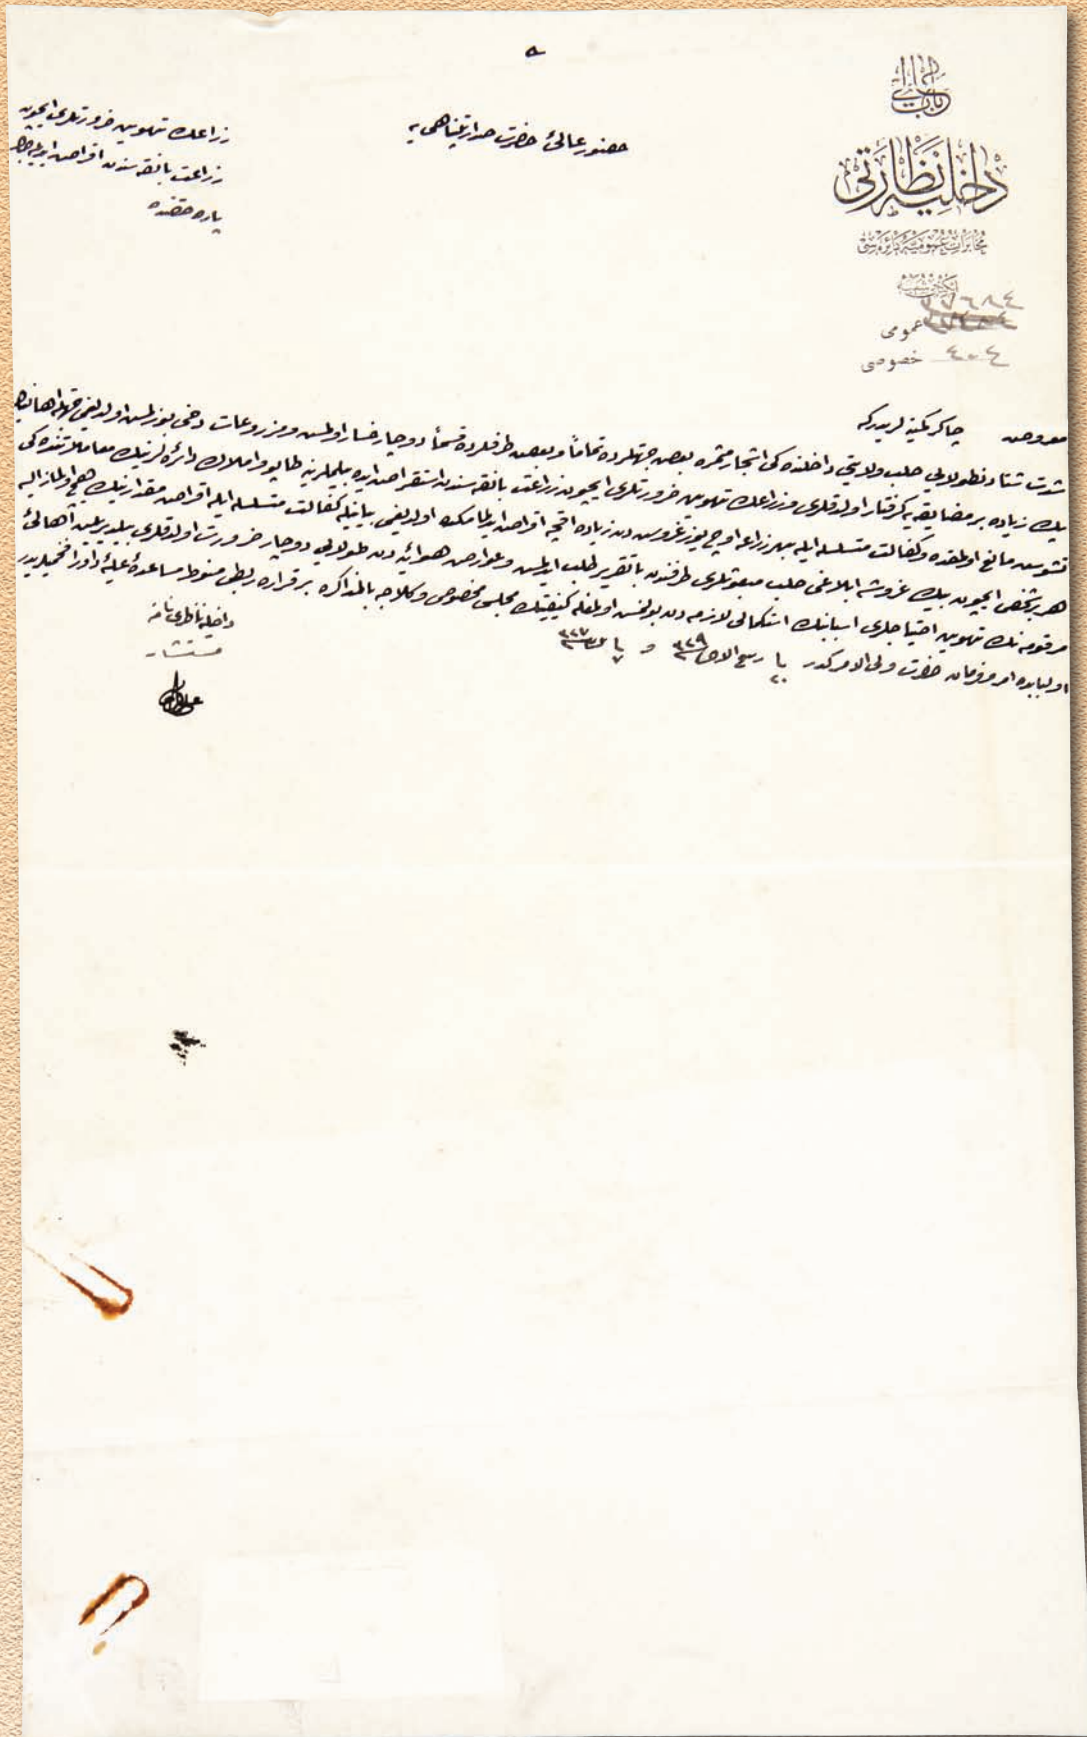 باب عالی
داخلیه نظارتی
مخابرات عمومیه دائره‌سی
ایکنجی شعبه
عمومی
خصوصی ٤٠٤
حضور عالئ حضرت صدارتپناهی‌یه
زراعك تهوین ضرورتلری ایچون
زراعت بانقه‌سندن اقراض ایدیله‌جك
پاره حقنده
معروض چاکر کمینه‌لریدر که
شدت شتادن طولایی حلب ولایتی داخلنده‌کی اشجار مثمره بعض جهتلرده تماماً وبعض طرفلرده قسماً دوچار خسار اولمش ومزروعات دخی بوزلمش اولدیغی جهتله اهالینك
پك زیاده بر مضایقه‌یه گرفتار اولدقلری وزراعك تهوین ضرورتلری ایچون زراعت بانقه‌سندن استقراض ایده‌بیلملرینه طاپو واملاك دائره‌لرینك معاملاتنده‌کی
تشوش مانع اولمقده وکفالت متسلسله ایله بهر زراعه اوچ یوز غروشدن زیاده اقچه اقراض ایدیلمامکده اولدیغی بیانیله کفالت متسلسله ایله اقراض مقدارینك هیچ اولمازسه
هر بر شخص ایچون بیك غروشه ابلاغی حلب مبعوثلری طرفندن باتقریر طلب ایدلمش وعوارض هوائیه‌دن طولایی دوچار ضرورت اولدقلری بیلدیریلن اهالئ
مرقومه‌نك تهوین احتیاجلری اسبابنك استکمالی لازمه‌دن بولنمش اولمغله کیفیتك مجلس مخصوص وکلاجه بالمذاکره بر قراره ربطی منوط مساعدۀ علیۀ داورافخمیلریدر
اولبابده امر وفرمان حضرت ولی الامرکدر ربیع الاخر ٣٢٩ و ٣٢٧
داخلیه ناظری نامنه
مستشار